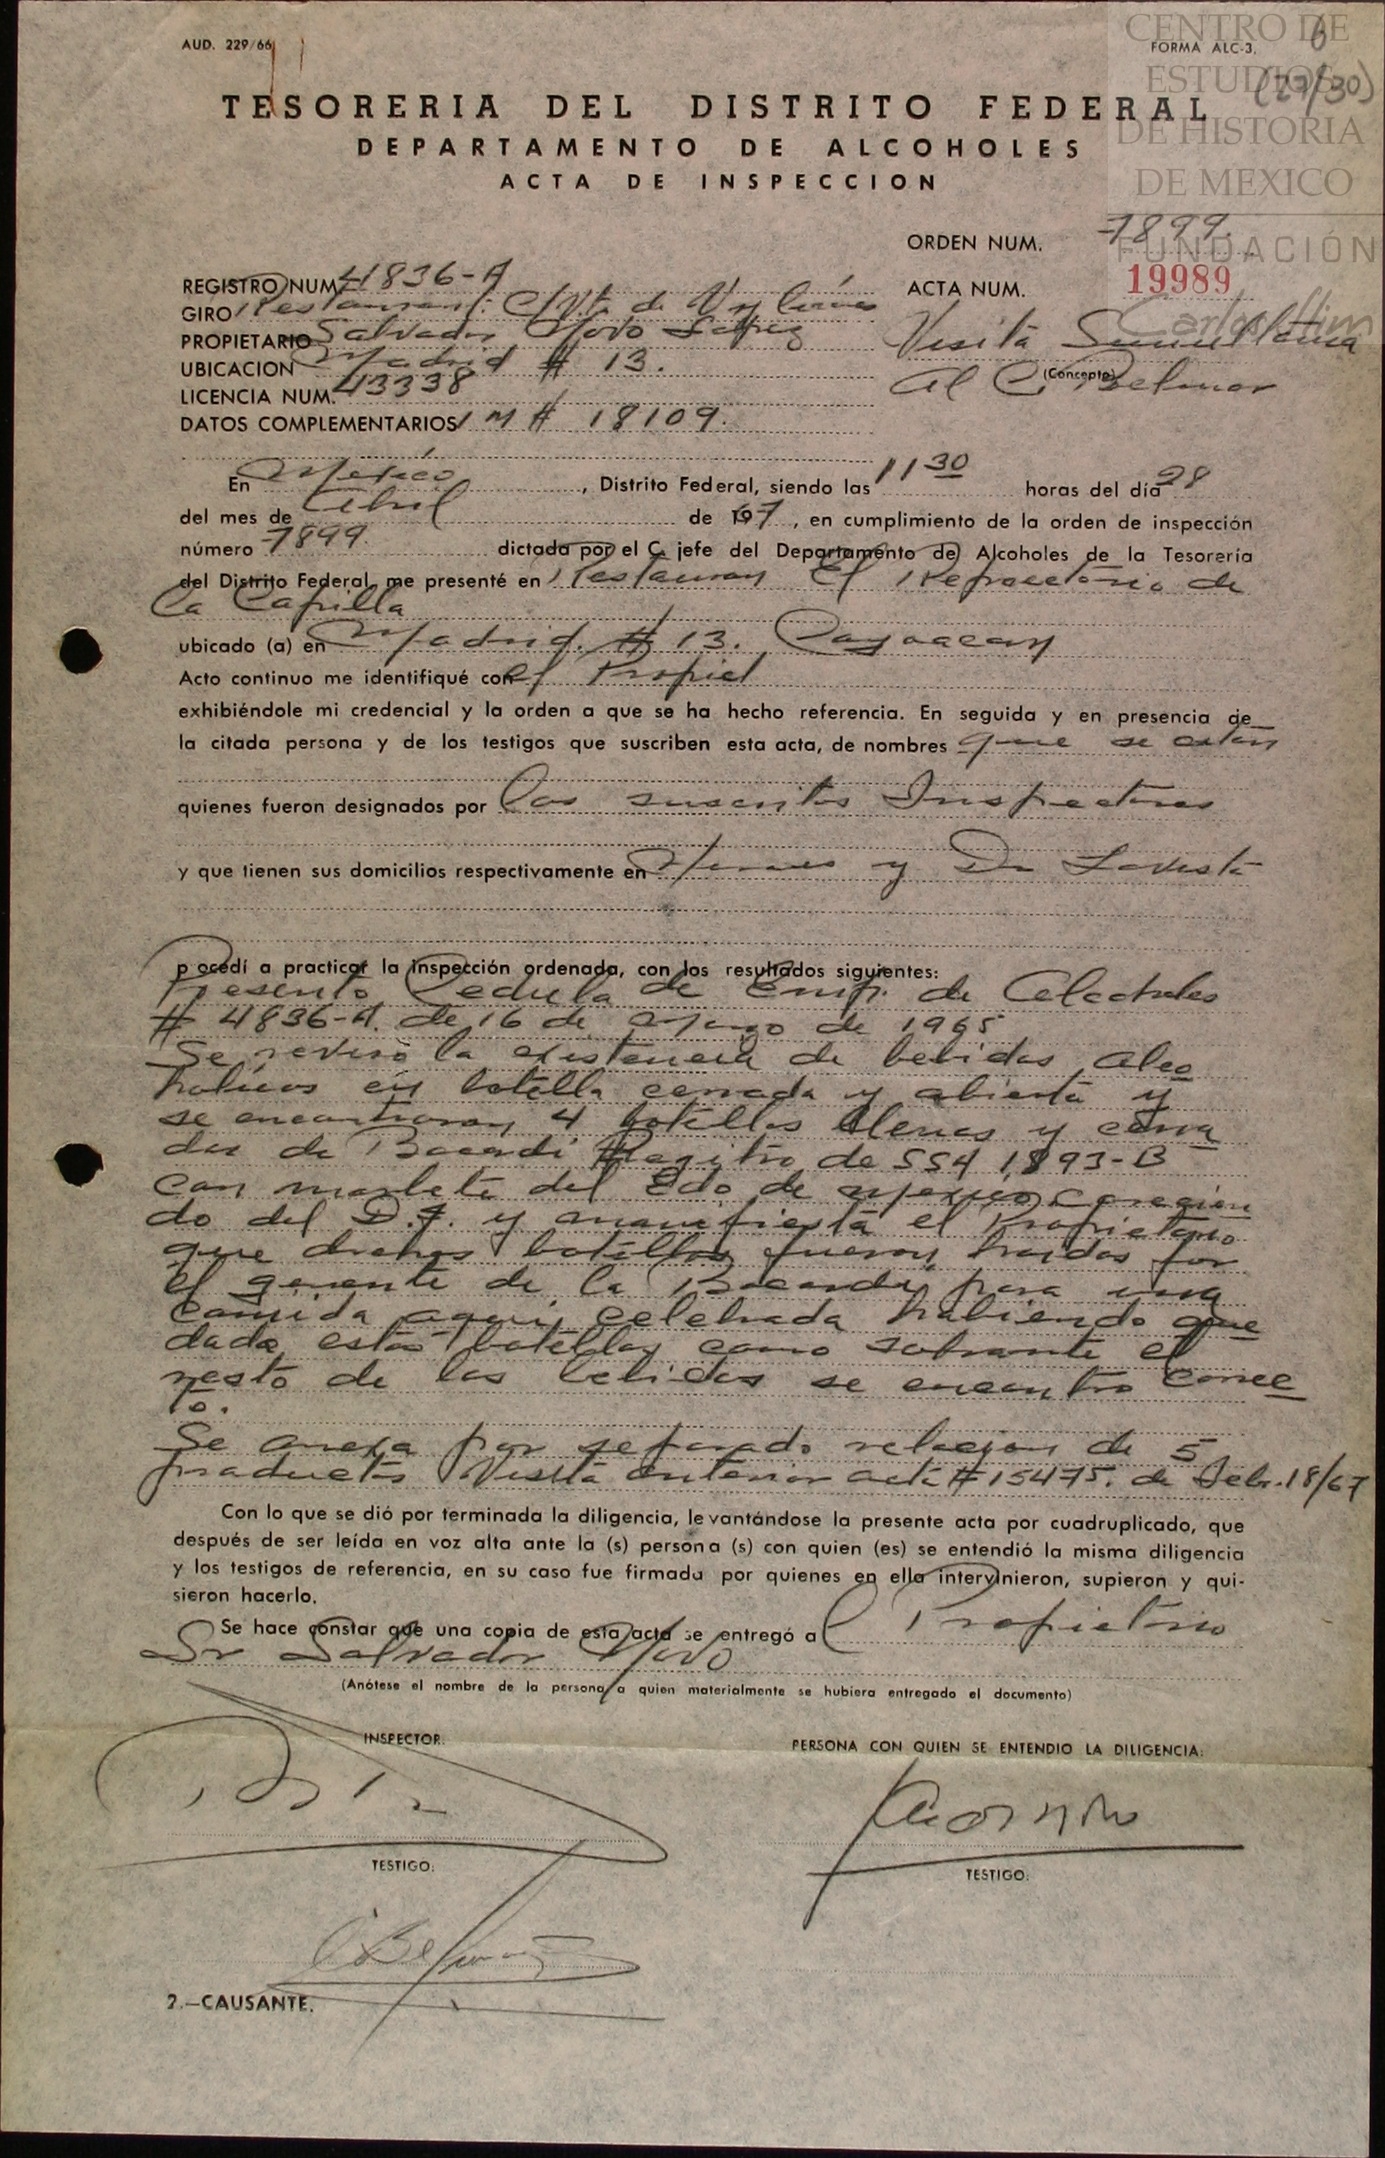 AUD. 229/66
FORMA ALC-3.
6
(27/30)
CENTRO DE
ESTUDIOS
DE HISTORIA
DE MEXICO
FUNDACIÓN
Carlos Slim
TESORERIA DEL DISTRITO FEDERAL
DEPARTAMENTO DE ALCOHOLES
ACTA DE INSPECCION
ORDEN NUM. 7899.
REGISTRO NUM. 4836-A
ACTA NUM. 19989
GIRO Restaurant. C/Vta. de V. y
PROPIETARIO Salvador Novo López
Visita Simultánea
UBICACION Madrid # 13.
(Concepto)
al C. Belmar
LICENCIA NUM. 43338
DATOS COMPLEMENTARIOS M # 18109.
En Mexico, Distrito Federal, siendo las 11 30 horas del día 28
del mes de Abril de 1967, en cumplimiento de la orden de inspección
número 7899. dictada por el C. jefe del Departamento de Alcoholes de la Tesorería
del Distrito Federal, me presenté en Restauran El Refrectorio de
La Capilla
ubicado (a) en Madrid. # 13. Coyoacan
Acto continuo me identifiqué con el Propiet
exhibiéndole mi credencial y la orden a que se ha hecho referencia. En seguida y en presencia de
la citada persona y de los testigos que suscriben esta acta, de nombres que se citan
quienes fueron designados por los suscritos Inspectores
y que tienen sus domicilios respectivamente en Heroes y Dr Lavista
procedí a practicar la inspección ordenada, con los resultados siguientes:
Presento Cedula de Emp. de Alcoholes
# 4836-A. de 16 de Mayo de 1965
Se reviso la existencia de bebidas alco
holicas en botella cerrada y abierta y
se encontraron 4 botellas llenas y cerra
das de Bacardi Registro de SSA 1893-B
con marbete del Edo de Mexico careciен
do del D.F. y manifiesta el Propietario
que dichas botellas fueron traidas por
el gerente de la Bacardi para una
comida aqui celebrada habiendo que
dado estas botellas como sobrante el
resto de las bebidas se encontro correc
to.
Se anexa por separado relacion de 5
productos Visita anterior acta # 15475. de Febr. 18/67
Con lo que se dió por terminada la diligencia, levantándose la presente acta por cuadruplicado, que
después de ser leída en voz alta ante la (s) persona (s) con quien (es) se entendió la misma diligencia
y los testigos de referencia, en su caso fue firmada por quienes en ella intervinieron, supieron y qui-
sieron hacerlo.
Se hace constar que una copia de esta acta se entregó al Propietario
Sr Salvador Novo
(Anótese el nombre de la persona a quien materialmente se hubiera entregado el documento)
INSPECTOR.
PERSONA CON QUIEN SE ENTENDIO LA DILIGENCIA:
TESTIGO:
TESTIGO:
2.—CAUSANTE.